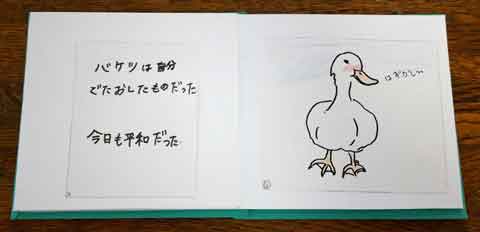 バケツは自分
でたおしたものだった
今日も平和だった
はずかしい